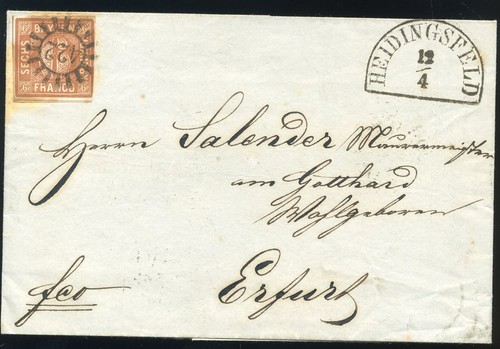 BAYERN
SECHS
FRANCO
HEIDINGSFELD
12
4
Herrn Salender Maurermeister
am Gotthard
Wohlgeboren
fco
Erfurt